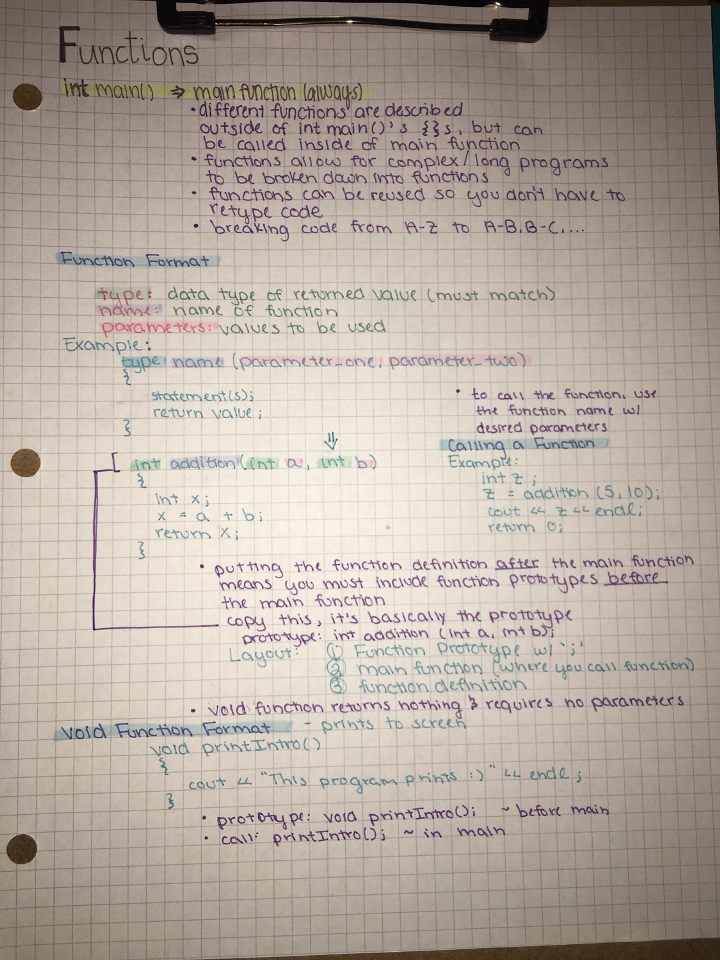 Functions
int main() ⇒ main function (always)
• different functions are described
outside of int main()'s {}s, but can
be called inside of main function
• functions allow for complex/long programs
to be broken down into functions
• functions can be reused so you don't have to
retype code
• breaking code from A-Z to A-B, B-C, ...
Function Format
type: data type of returned value (must match)
name: name of function
parameters: values to be used
Example:
type name (parameter_one, parameter_two)
{
statement(s);
return value;
}
• to call the function, use
the function name w/
desired parameters
⇓
Calling a Function
Example:
int z;
z = addition (5, 10);
cout << z << endl;
return 0;
int addition (int a, int b)
{
int x;
x = a + b;
return x;
}
• putting the function definition after the main function
means you must include function prototypes before
the main function
copy this, it's basically the prototype
prototype: int addition (int a, int b);
Layout: ① Function Prototype w/ ';'
② main function (where you call function)
③ function definition
• void function returns nothing & requires no parameters
Void Function Format - prints to screen
void printIntro()
{
cout << "This program prints :)" << endl;
}
• prototype: void printIntro(); ~ before main
• call: printIntro(); ~ in main